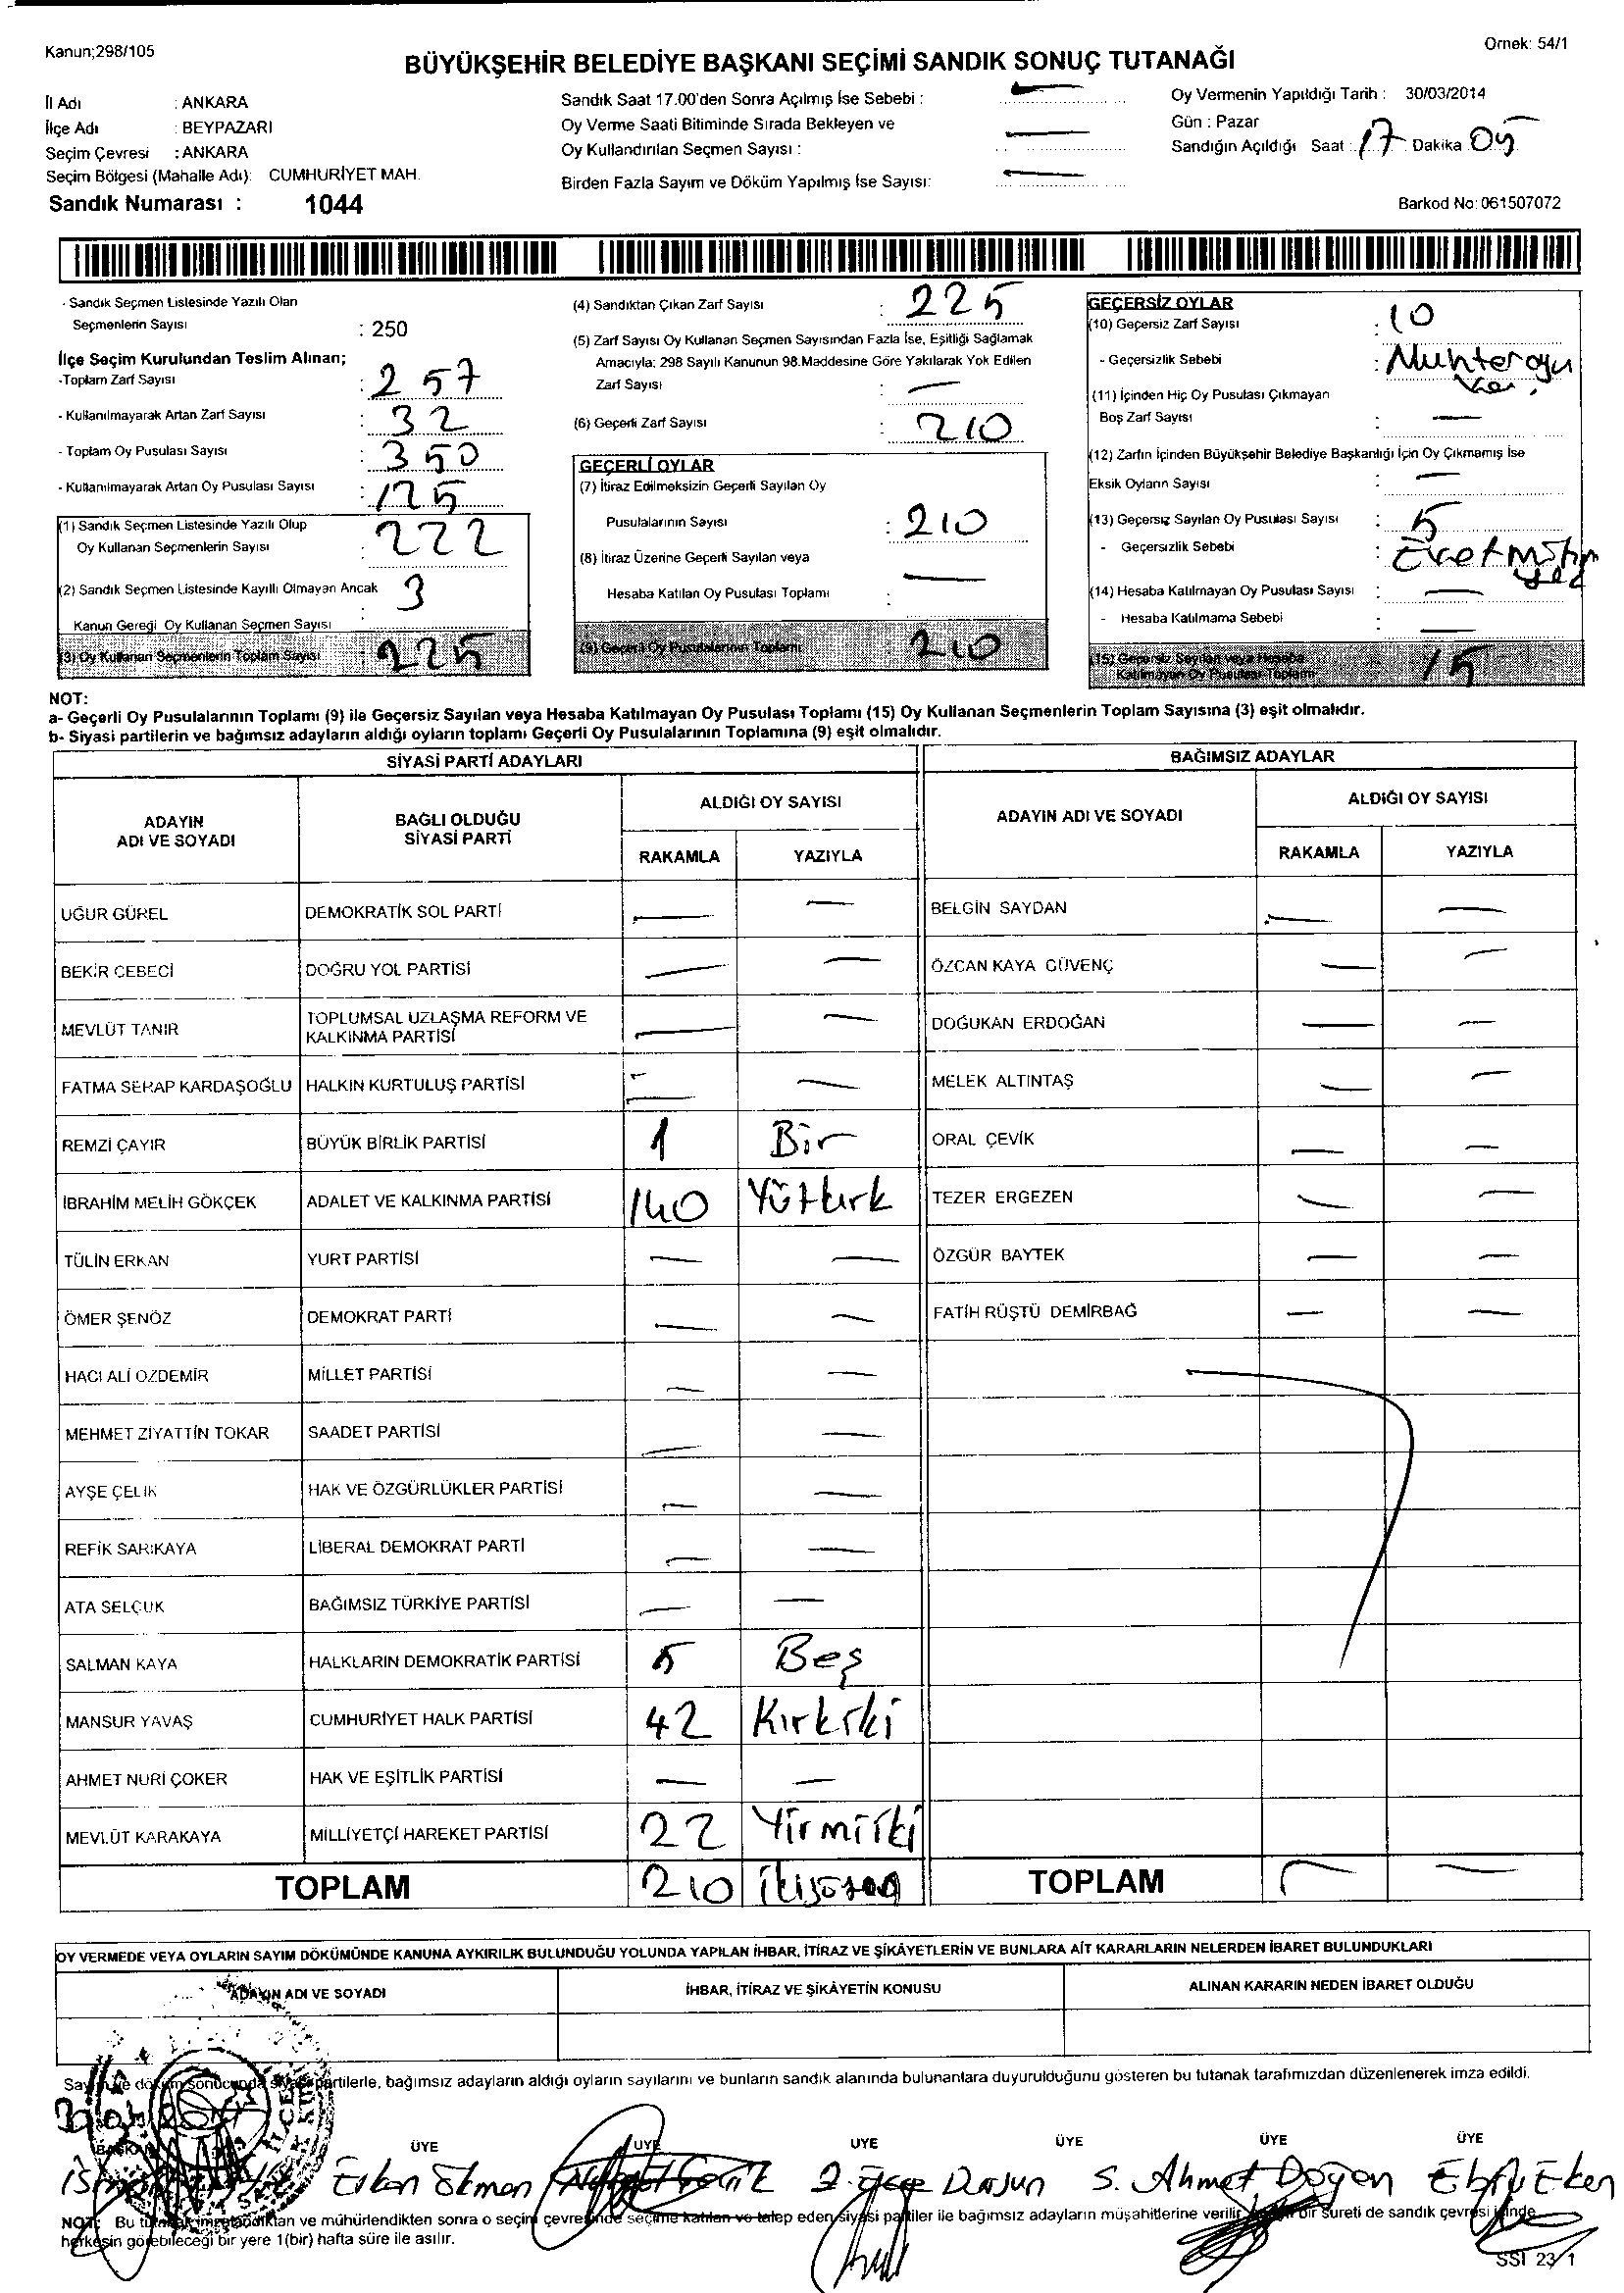 Kanun;298/105
Örnek: 54/1
BÜYÜKŞEHİR BELEDİYE BAŞKANI SEÇİMİ SANDIK SONUÇ TUTANAĞI
İl Adı : ANKARA
İlçe Adı : BEYPAZARI
Seçim Çevresi : ANKARA
Seçim Bölgesi (Mahalle Adı): CUMHURİYET MAH.
Sandık Numarası : 1044
Sandık Saat 17.00'den Sonra Açılmış İse Sebebi : —
Oy Verme Saati Bitiminde Sırada Bekleyen ve
Oy Kullandırılan Seçmen Sayısı : —
Birden Fazla Sayım ve Döküm Yapılmış İse Sayısı: —
Oy Vermenin Yapıldığı Tarih : 30/03/2014
Gün : Pazar
Sandığın Açıldığı Saat : 17 Dakika 05
Barkod No: 061507072
- Sandık Seçmen Listesinde Yazılı Olan
Seçmenlerin Sayısı : 250
İlçe Seçim Kurulundan Teslim Alınan;
-Toplam Zarf Sayısı : 257
- Kullanılmayarak Artan Zarf Sayısı : 32
- Toplam Oy Pusulası Sayısı : 350
- Kullanılmayarak Artan Oy Pusulası Sayısı : 125
(1) Sandık Seçmen Listesinde Yazılı Olup
Oy Kullanan Seçmenlerin Sayısı : 222
(2) Sandık Seçmen Listesinde Kayıllı Olmayan Ancak
Kanun Gereği Oy Kullanan Seçmen Sayısı : 3
(3) Oy Kullanan Seçmenlerin Toplam Sayısı : 225
(4) Sandıktan Çıkan Zarf Sayısı : 225
(5) Zarf Sayısı Oy Kullanan Seçmen Sayısından Fazla İse, Eşitliği Sağlamak
Amacıyla; 298 Sayılı Kanunun 98.Maddesine Göre Yakılarak Yok Edilen
Zarf Sayısı : —
(6) Geçerli Zarf Sayısı : 210
GEÇERLİ OYLAR
(7) İtiraz Edilmeksizin Geçerli Sayılan Oy
Pusulalarının Sayısı : 210
(8) İtiraz Üzerine Geçerli Sayılan veya
Hesaba Katılan Oy Pusulası Toplamı : —
(9) Geçerli Oy Pusulalarının Toplamı 210
GEÇERSİZ OYLAR
(10) Geçersiz Zarf Sayısı : 10
- Geçersizlik Sebebi :
(11) İçinden Hiç Oy Pusulası Çıkmayan
Boş Zarf Sayısı : —
(12) Zarfın İçinden Büyükşehir Belediye Başkanlığı İçin Oy Çıkmamış İse
Eksik Oyların Sayısı : —
(13) Geçersiz Sayılan Oy Pusulası Sayısı : 5
- Geçersizlik Sebebi :
(14) Hesaba Katılmayan Oy Pusulası Sayısı : —
- Hesaba Katılmama Sebebi : —
(15) Geçersiz Sayılan veya Hesaba
Katılmayan Oy Pusulası Toplamı 15
NOT:
a- Geçerli Oy Pusulalarının Toplamı (9) ile Geçersiz Sayılan veya Hesaba Katılmayan Oy Pusulası Toplamı (15) Oy Kullanan Seçmenlerin Toplam Sayısına (3) eşit olmalıdır.
b- Siyasi partilerin ve bağımsız adayların aldığı oyların toplamı Geçerli Oy Pusulalarının Toplamına (9) eşit olmalıdır.
SİYASİ PARTİ ADAYLARI
ADAYIN ADI VE SOYADI
BAĞLI OLDUĞU SİYASİ PARTİ
ALDIĞI OY SAYISI
RAKAMLA YAZIYLA
UĞUR GÜREL DEMOKRATİK SOL PARTİ — —
BEKİR CEBECİ DOĞRU YOL PARTİSİ — —
MEVLÜT TANIR TOPLUMSAL UZLAŞMA REFORM VE
KALKINMA PARTİSİ — —
FATMA SERAP KARDAŞOĞLU HALKIN KURTULUŞ PARTİSİ — —
REMZİ ÇAYIR BÜYÜK BİRLİK PARTİSİ 1 Bir
İBRAHİM MELİH GÖKÇEK ADALET VE KALKINMA PARTİSİ 140 Yütkırk
TÜLİN ERKAN YURT PARTİSİ — —
ÖMER ŞENÖZ DEMOKRAT PARTİ — —
HACI ALİ ÖZDEMİR MİLLET PARTİSİ — —
MEHMET ZİYATTİN TOKAR SAADET PARTİSİ — —
AYŞE ÇELİK HAK VE ÖZGÜRLÜKLER PARTİSİ — —
REFİK SARIKAYA LİBERAL DEMOKRAT PARTİ — —
ATA SELÇUK BAĞIMSIZ TÜRKİYE PARTİSİ — —
SALMAN KAYA HALKLARIN DEMOKRATİK PARTİSİ 5 Beş
MANSUR YAVAŞ CUMHURİYET HALK PARTİSİ 42 Kırkiki
AHMET NURİ ÇOKER HAK VE EŞİTLİK PARTİSİ — —
MEVLÜT KARAKAYA MİLLİYETÇİ HAREKET PARTİSİ 22 Yirmiiki
TOPLAM 210
BAĞIMSIZ ADAYLAR
ADAYIN ADI VE SOYADI
ALDIĞI OY SAYISI
RAKAMLA YAZIYLA
BELGİN SAYDAN — —
ÖZCAN KAYA GÜVENÇ — —
DOĞUKAN ERDOĞAN — —
MELEK ALTINTAŞ — —
ORAL ÇEVİK — —
TEZER ERGEZEN — —
ÖZGÜR BAYTEK — —
FATİH RÜŞTÜ DEMİRBAĞ — —
TOPLAM — —
OY VERMEDE VEYA OYLARIN SAYIM DÖKÜMÜNDE KANUNA AYKIRILIK BULUNDUĞU YOLUNDA YAPILAN İHBAR, İTİRAZ VE ŞİKÂYETLERİN VE BUNLARA AİT KARARLARIN NELERDEN İBARET BULUNDUKLARI
ADAYIN ADI VE SOYADI
İHBAR, İTİRAZ VE ŞİKÂYETİN KONUSU
ALINAN KARARIN NEDEN İBARET OLDUĞU
Sayım ve döküm sonucunda siyasi partilerle, bağımsız adayların aldığı oyların sayılarını ve bunların sandık alanında bulunanlara duyurulduğunu gösteren bu tutanak tarafımızdan düzenlenerek imza edildi.
BAŞKAN ÜYE ÜYE ÜYE ÜYE ÜYE ÜYE
Erkan Ökmen Dursun S. Ahmet Doğan Eken
NOT: Bu tutanak imzalandıktan ve mühürlendikten sonra o seçim çevresinde seçime katılan ve talep eden siyasi partiler ile bağımsız adayların müşahitlerine verilir bir sureti de sandık çevresi içinde
herkesin görebileceği bir yere 1(bir) hafta süre ile asılır.
SSİ 23/1